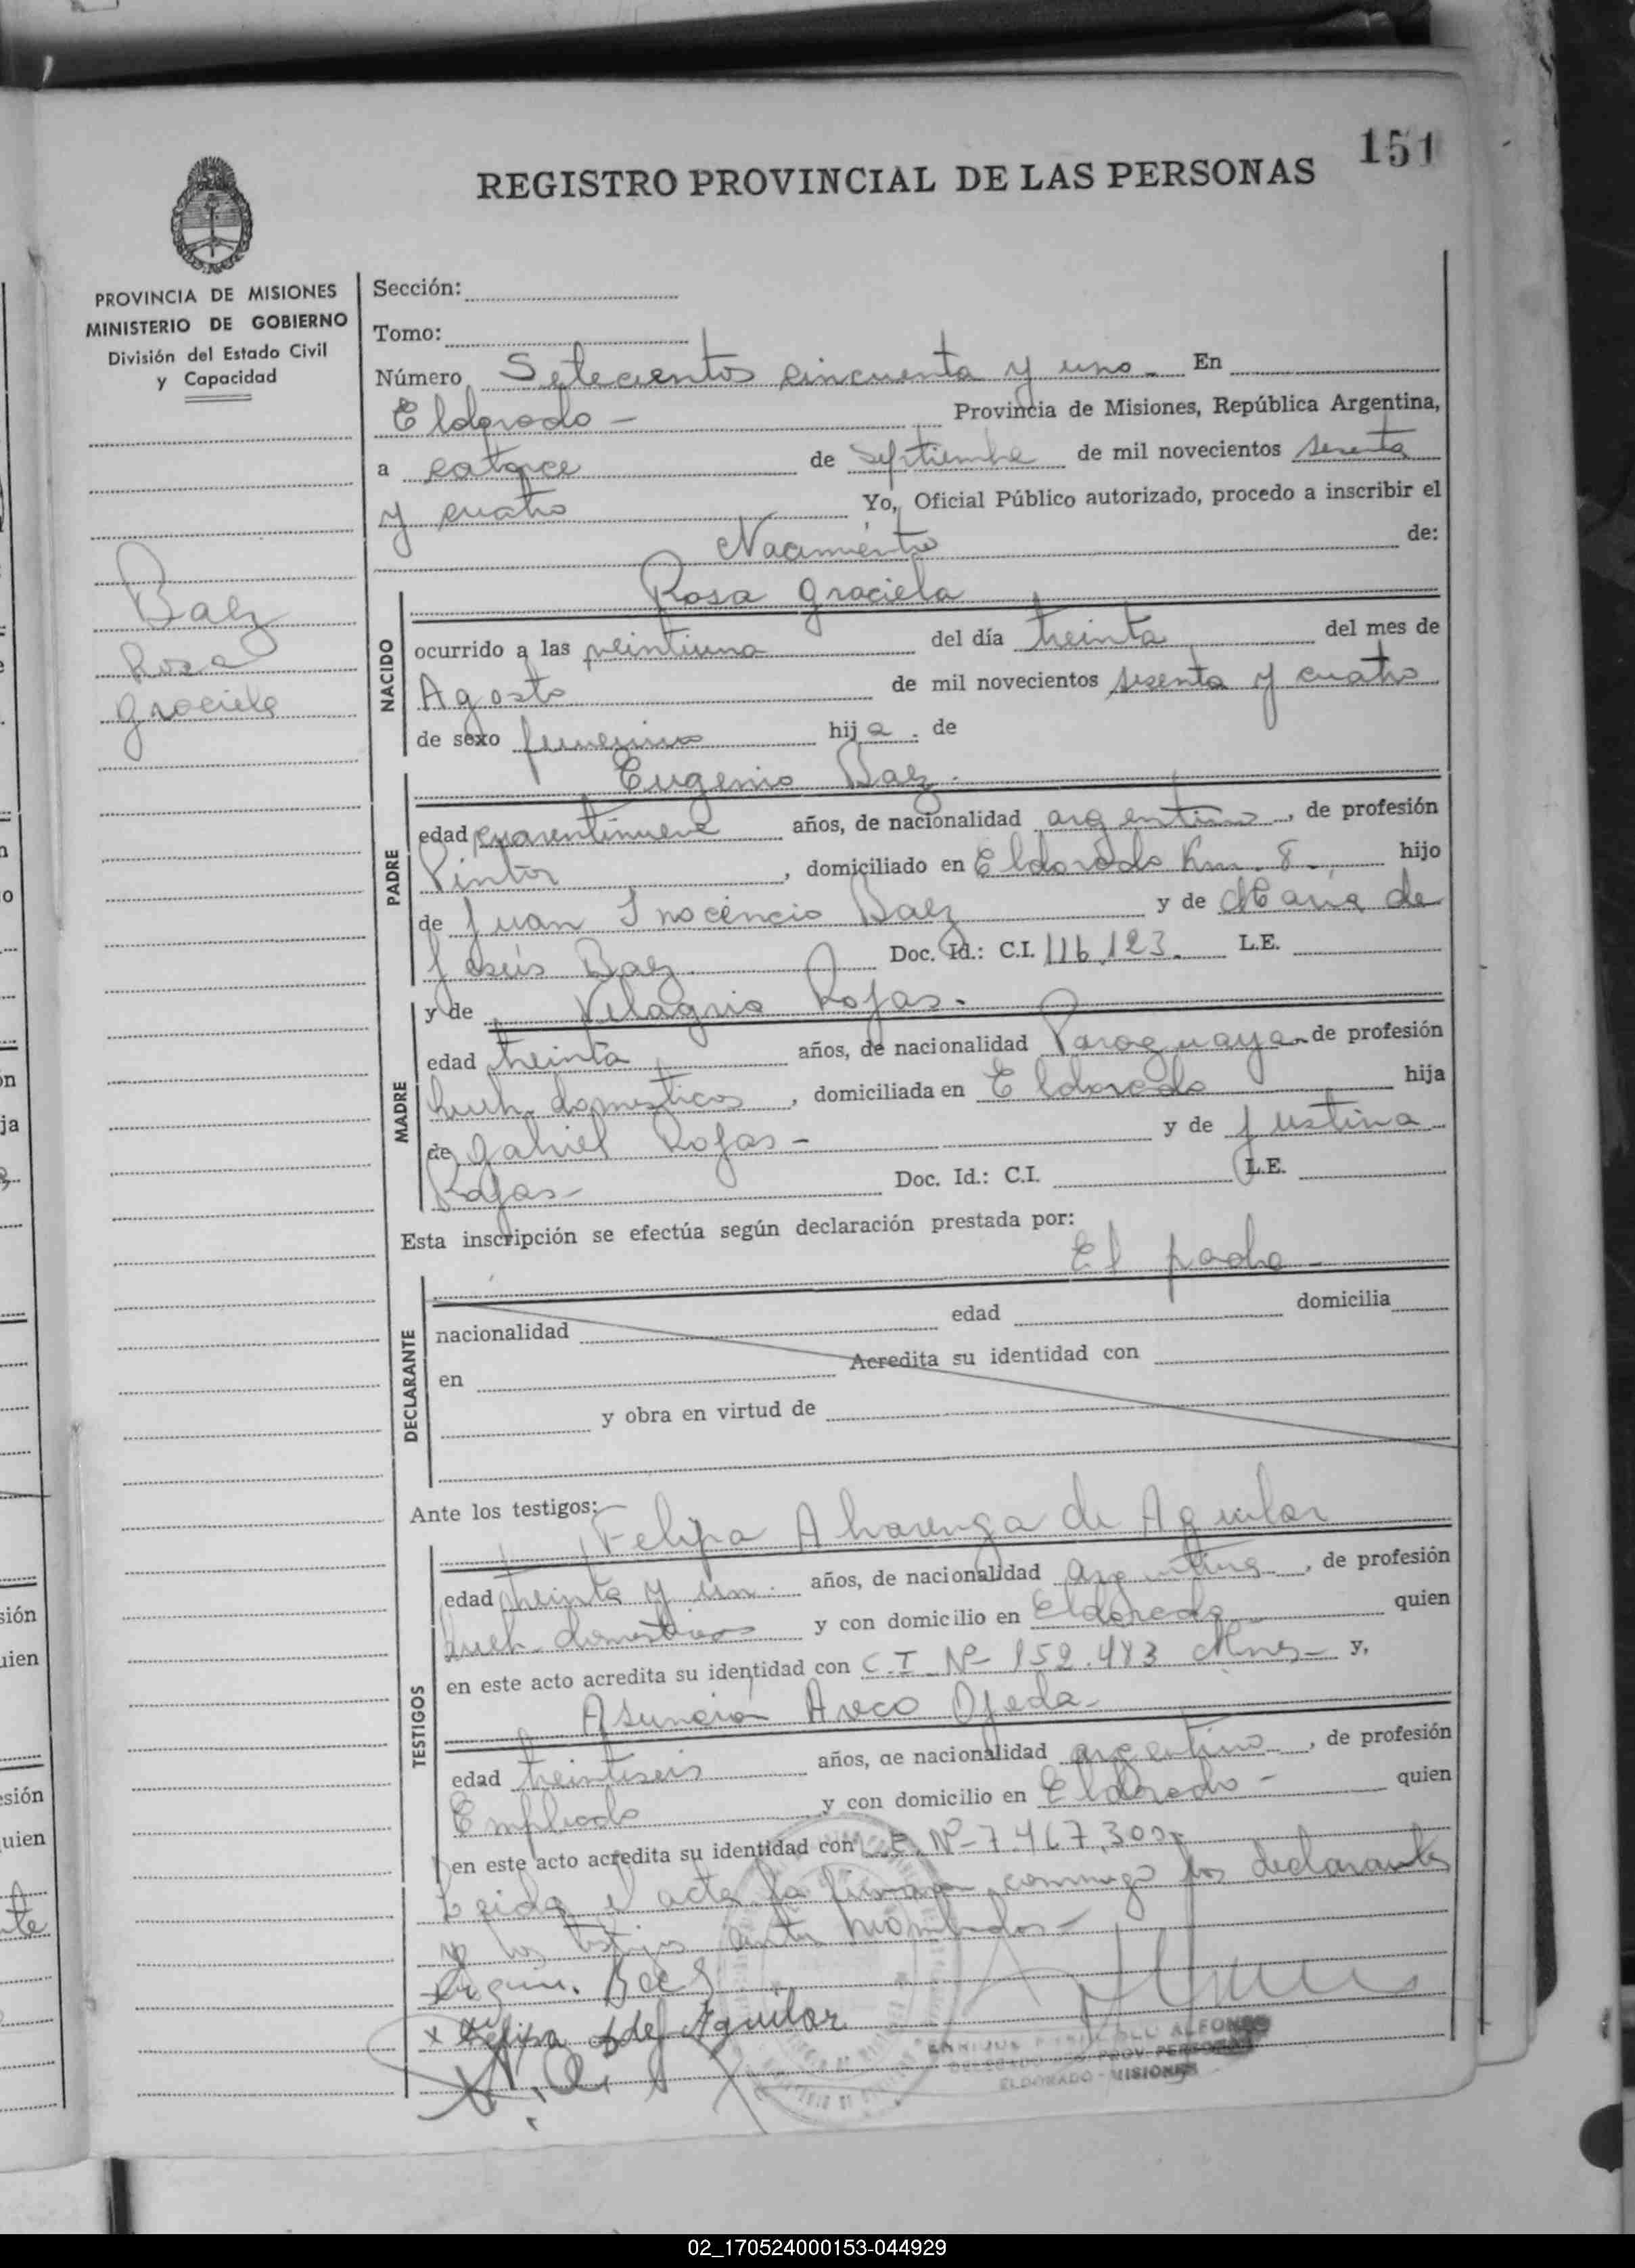 151
REGISTRO PROVINCIAL DE LAS PERSONAS
PROVINCIA DE MISIONES
MINISTERIO DE GOBIERNO
División del Estado Civil
y Capacidad
Baez
Rosa
Graciela
Sección:
Tomo:
Número Setecientos cincuenta y uno - En
Eldorado - Provincia de Misiones, República Argentina,
a catorce de septiembre de mil novecientos sesenta
y cuatro Yo, Oficial Público autorizado, procedo a inscribir el
Nacimiento de:
NACIDO
Rosa Graciela
ocurrido a las veintiuna del día treinta del mes de
Agosto de mil novecientos sesenta y cuatro
de sexo femenino hija. de
PADRE
Eugenio Baez.
edad cuarentinueve años, de nacionalidad argentino, de profesión
Pintor, domiciliado en Eldorado Km. 8. hijo
de Juan Inocencio Baez y de María de
Jesús Baez Doc. Id.: C.I. 116.123. L.E.
MADRE
y de Rojas.
edad treinta años, de nacionalidad Paraguaya de profesión
domesticos, domiciliada en Eldorado hija
de Gabriel Rojas - y de Justina
Rojas - Doc. Id.: C.I. L.E.
Esta inscripción se efectúa según declaración prestada por:
El padre -
DECLARANTE
nacionalidad edad domicilia
en Acredita su identidad con
y obra en virtud de
Ante los testigos:
TESTIGOS
Felipa Aharenga de Aguilar
edad treinta y un. años, de nacionalidad argentina, de profesión
domesticos y con domicilio en Eldorado quien
en este acto acredita su identidad con C.I. Nº 152.483 Mnes - y,
Asunción Areco Ojeda -
edad treintiseis años, de nacionalidad argentino, de profesión
Empleado y con domicilio en Eldorado - quien
en este acto acredita su identidad con L.E. Nº - 7.467.300
Leida el acta la firman conmigo los declarantes
y los testigos antes nombrados -
Baez
x Felipa A de Aguilar
ALFONSO
PROV. PERSONAS
ELDORADO - MISIONES
02_170524000153-044929